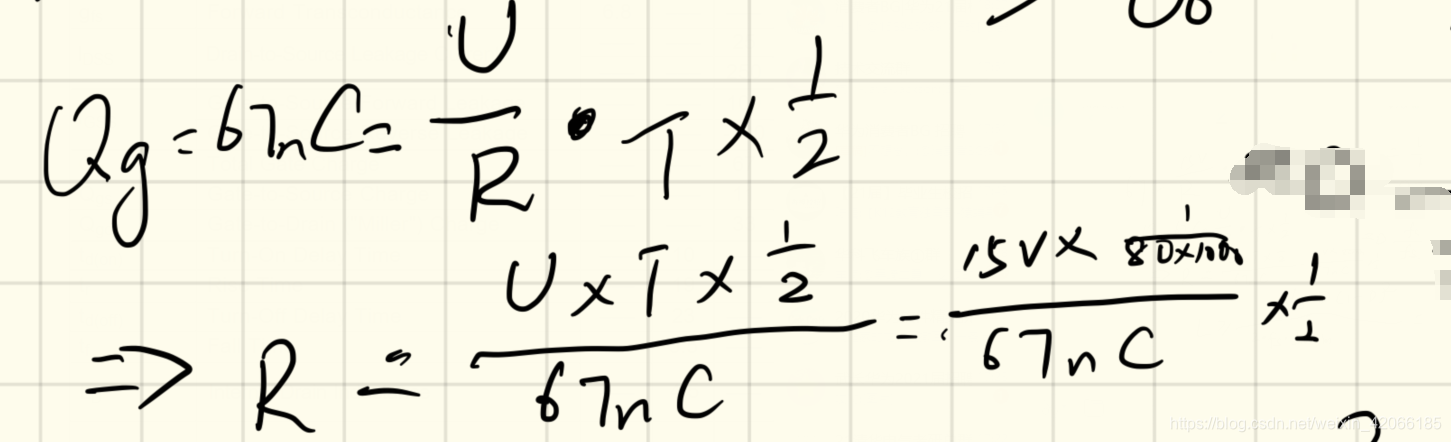 Qg = 67nC = U/R • T × 1/2
⇒ R = (U × T × 1/2)/(67nC) = (15V × 1/(80×1000))/(67nC) × 1/2
https://blog.csdn.net/weixin_42066185